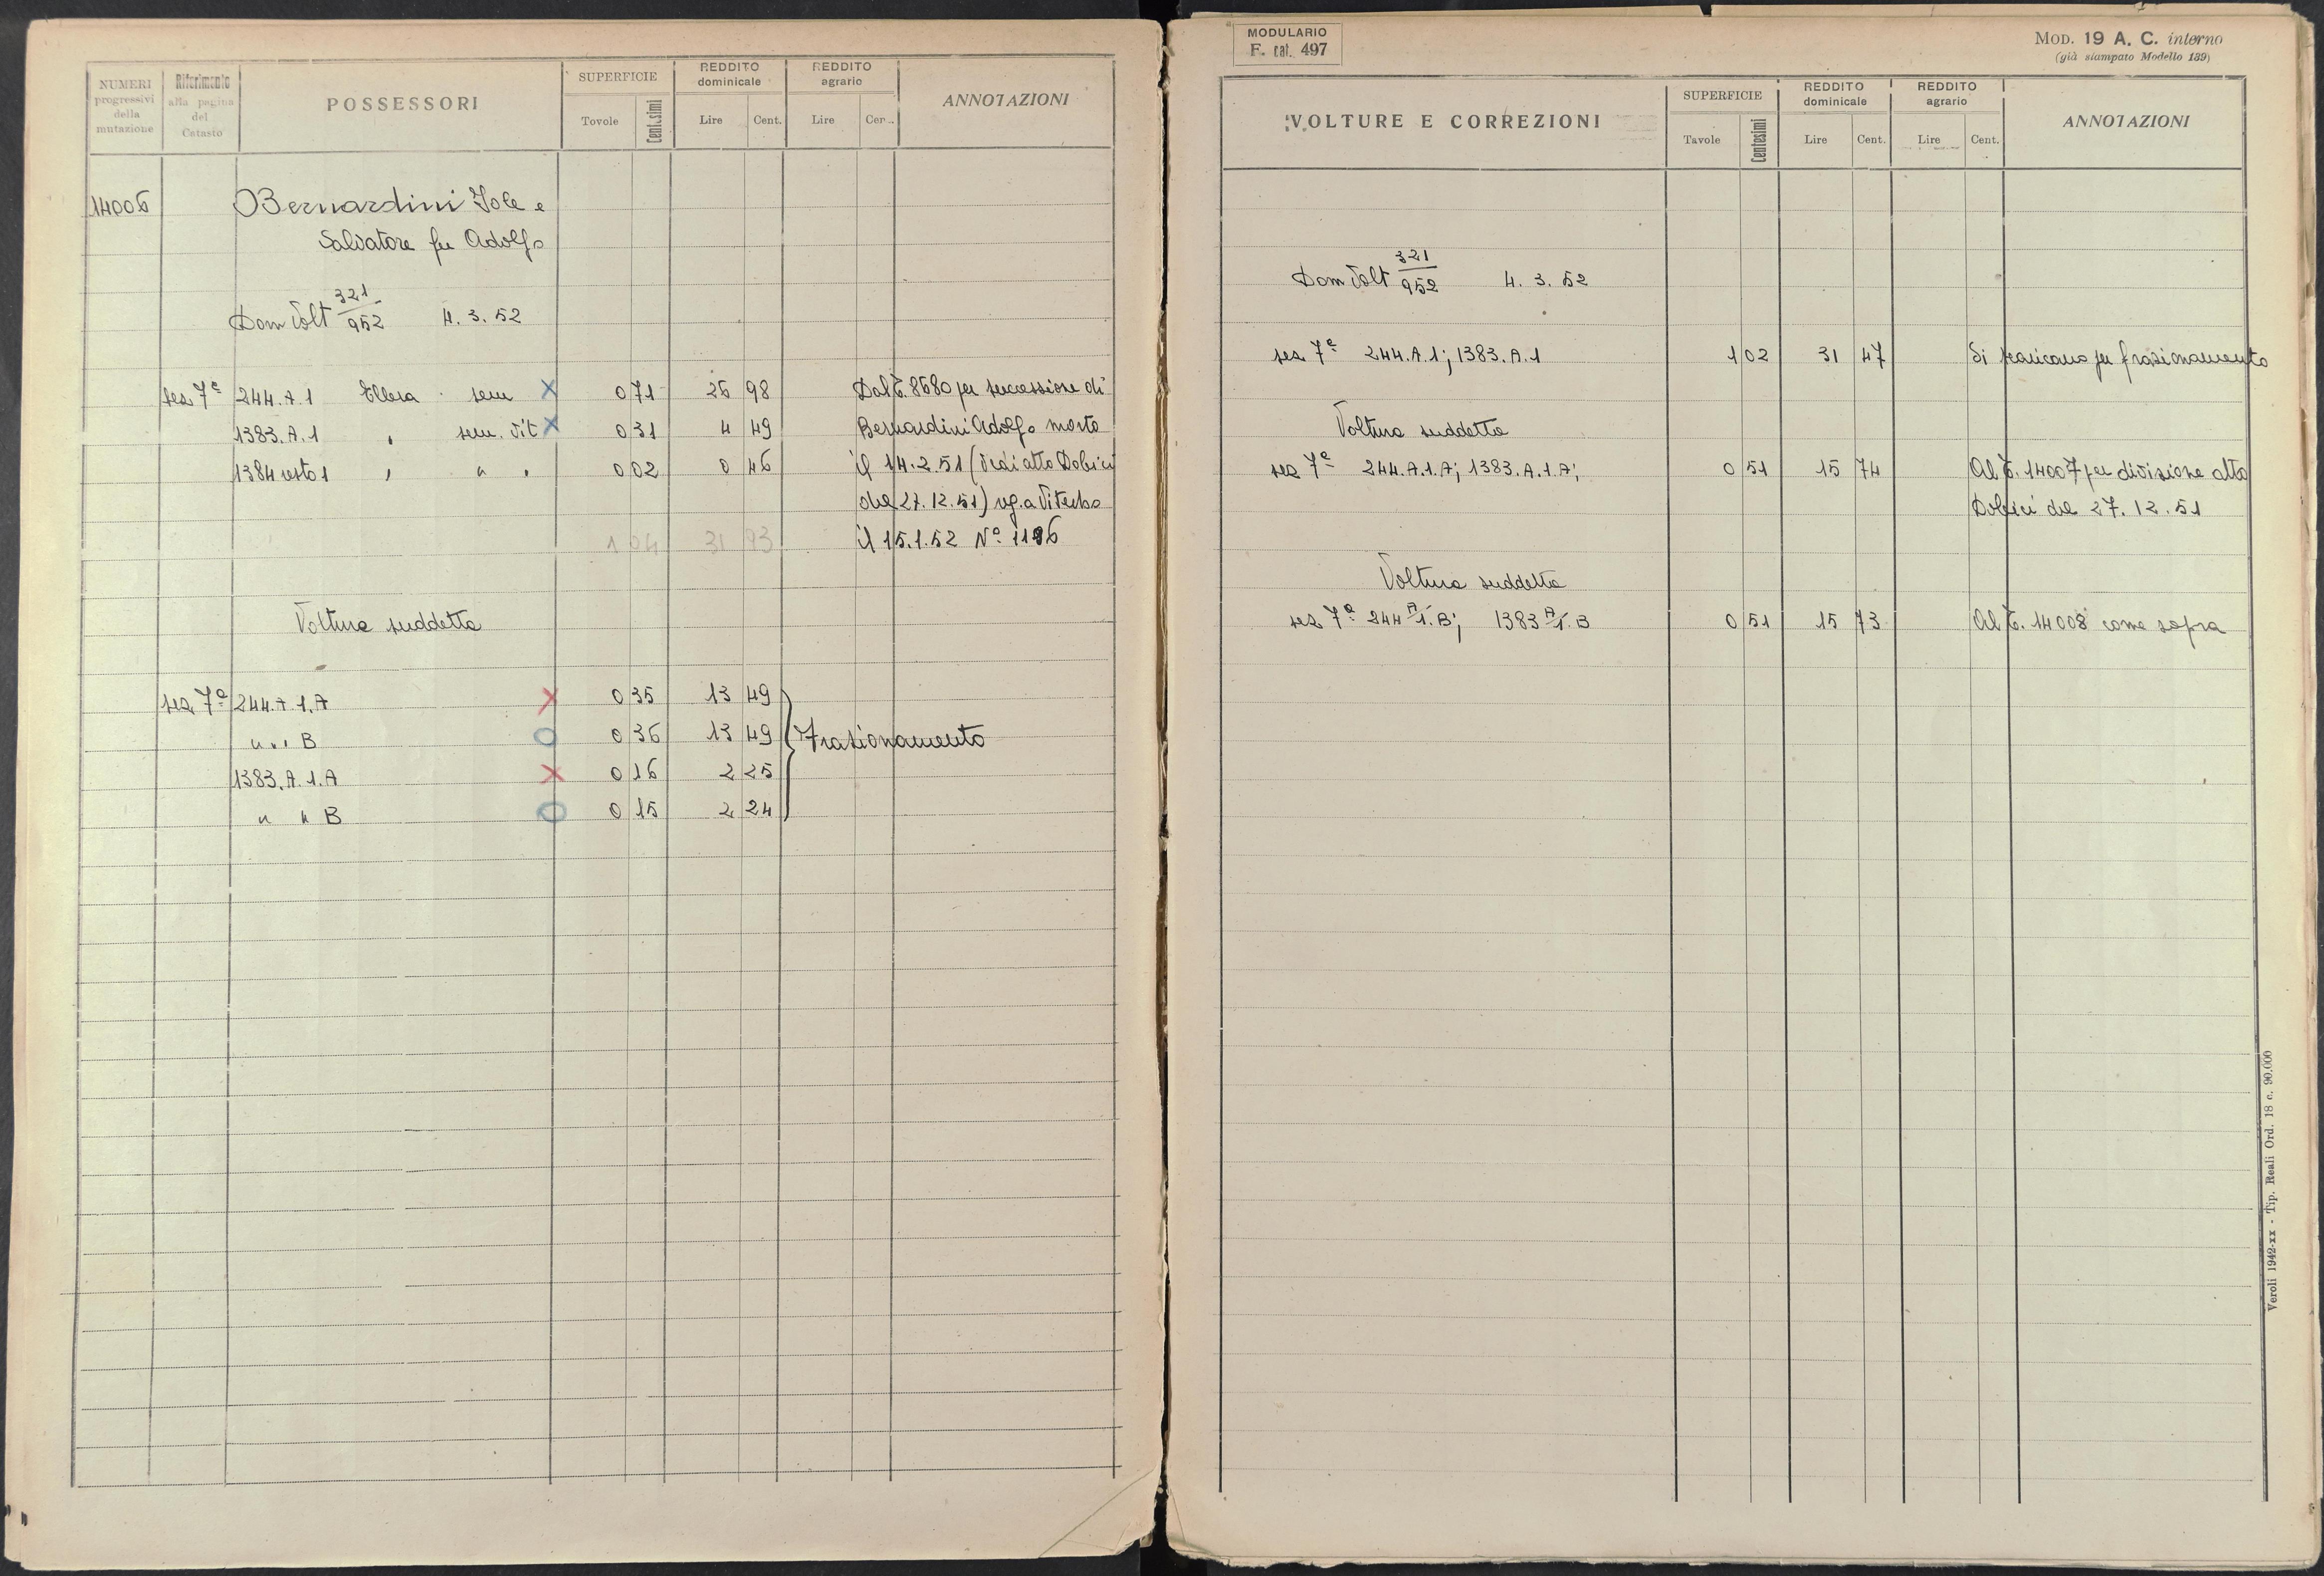 NUMERI progressivi della mutazione	Riferimento alla pagina del Catasto	POSSESSORI	SUPERFICIE Tovole Centesimi	REDDITO dominicale Lire Cent.	REDDITO agrario Lire Cer..	ANNOTAZIONI
14006 Bernardini Jole e
Salvatore fu Adolfo
Dom Volt 321/952 4.3.52
sez 7ª 244.A.1 Ellera sem X 0 71 26 98 Dal C. 8680 per successione di
1383.A.1 " sem. vit X 0 31 4 49 Bernardini Adolfo morto
1384 resto 1 " " " 0 02 0 46 il 14.2.51 (vedi atto Dobici
del 27.12.51) reg. a Viterbo
1 04 31 93 il 15.1.52 Nº 1186
Voltura suddetta
sez 7ª 244.A.1.A X 0 35 13 49
" " " B O 0 36 13 49 Frazionamento
1383.A.1.A X 0 16 2 25
" " B O 0 15 2 24
MODULARIO
F. cat. 497
MOD. 19 A. C. interno
(già stampato Modello 189)
VOLTURE E CORREZIONI	SUPERFICIE Tavole Centesimi	REDDITO dominicale Lire Cent.	REDDITO agrario Lire Cent.	ANNOTAZIONI
Dom Volt 321/952 4.3.52
sez 7ª 244.A.1; 1383.A.1 1 02 31 47 Si scaricano per frazionamento
Voltura suddetta
sez 7ª 244.A.1.A; 1383.A.1.A; 0 51 15 74 Al C. 14007 per divisione atto
Dobici del 27.12.51
Voltura suddetta
sez 7ª 244 A/1.B; 1383 A/1.B 0 51 15 73 Al C. 14008 come sopra
Veroli 1942-xx - Tip. Reali Ord. 18 c. 90.000